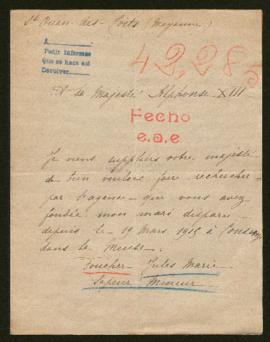 St Ouen-des-Toits (Mayenne)
A
Petit Informe
Que se hace así
42,285
A sa Majesté Alphonse XIII
Fecho
e.a.e
Je viens supplier votre majesté
de bien vouloir faire rechercher
par l'agence que vous avez
fondée mon mari disparu
depuis le 19 Mars 1915 à
dans la Meuse.
Foucher Jules Marie
Sapeur Mineur